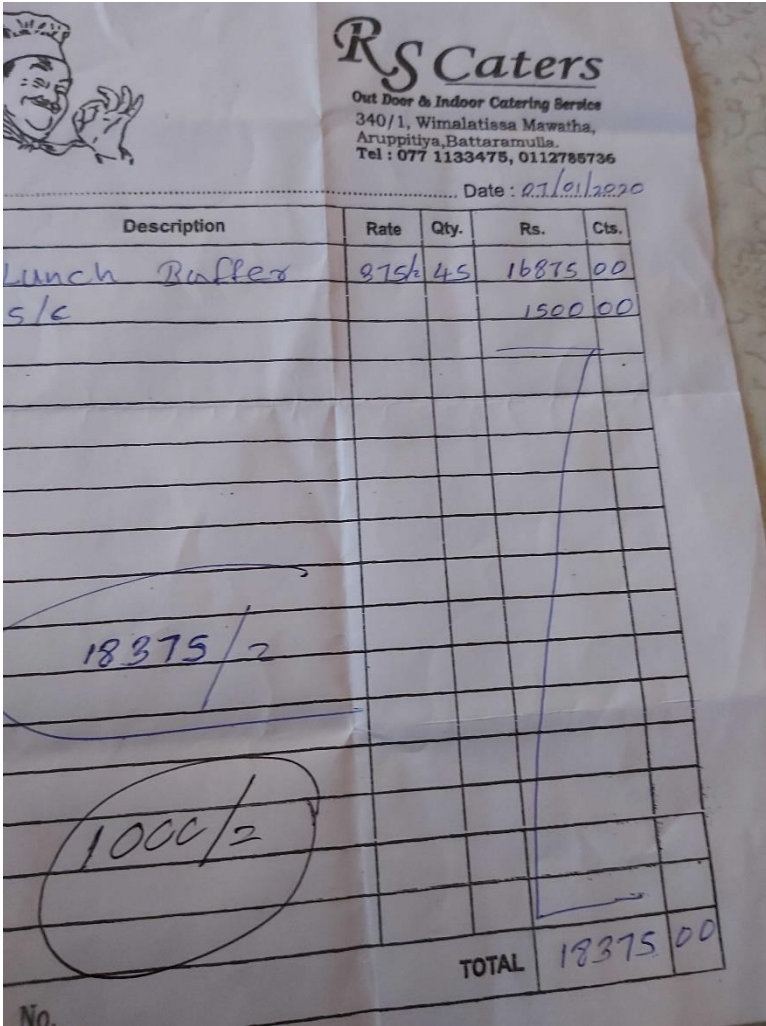 RS Caters
Out Door & Indoor Catering Service
340/1, Wimalatissa Mawatha,
Aruppitiya,Battaramulla.
Tel : 077 1133475, 0112785736
Date : 07/01/2020
Description Rate Qty. Rs. Cts.
Lunch Buffer 875/= 45 16875 00
S/C 1500 00
18375/=
1000/=
TOTAL 18375 00
No.